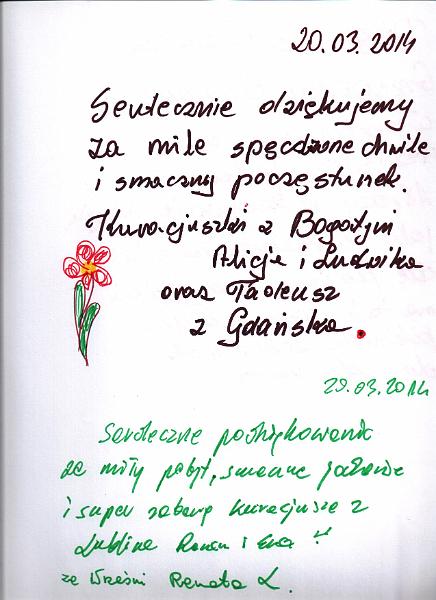 20.03.2014
Serdecznie dziękujemy
za miłe spędzone chwile
i smaczny poczęstunek.
Kuracjuszki z Bogatyni
Alicja i Ludwika
oraz Tadeusz
z Gdańska.
29.03.2014
Serdeczne podziękowania
za miły pobyt, smaczne jedzenie
i super zabawę kuracjusze z
Lublina Roman i Ewa
ze Wrześni Renata L.